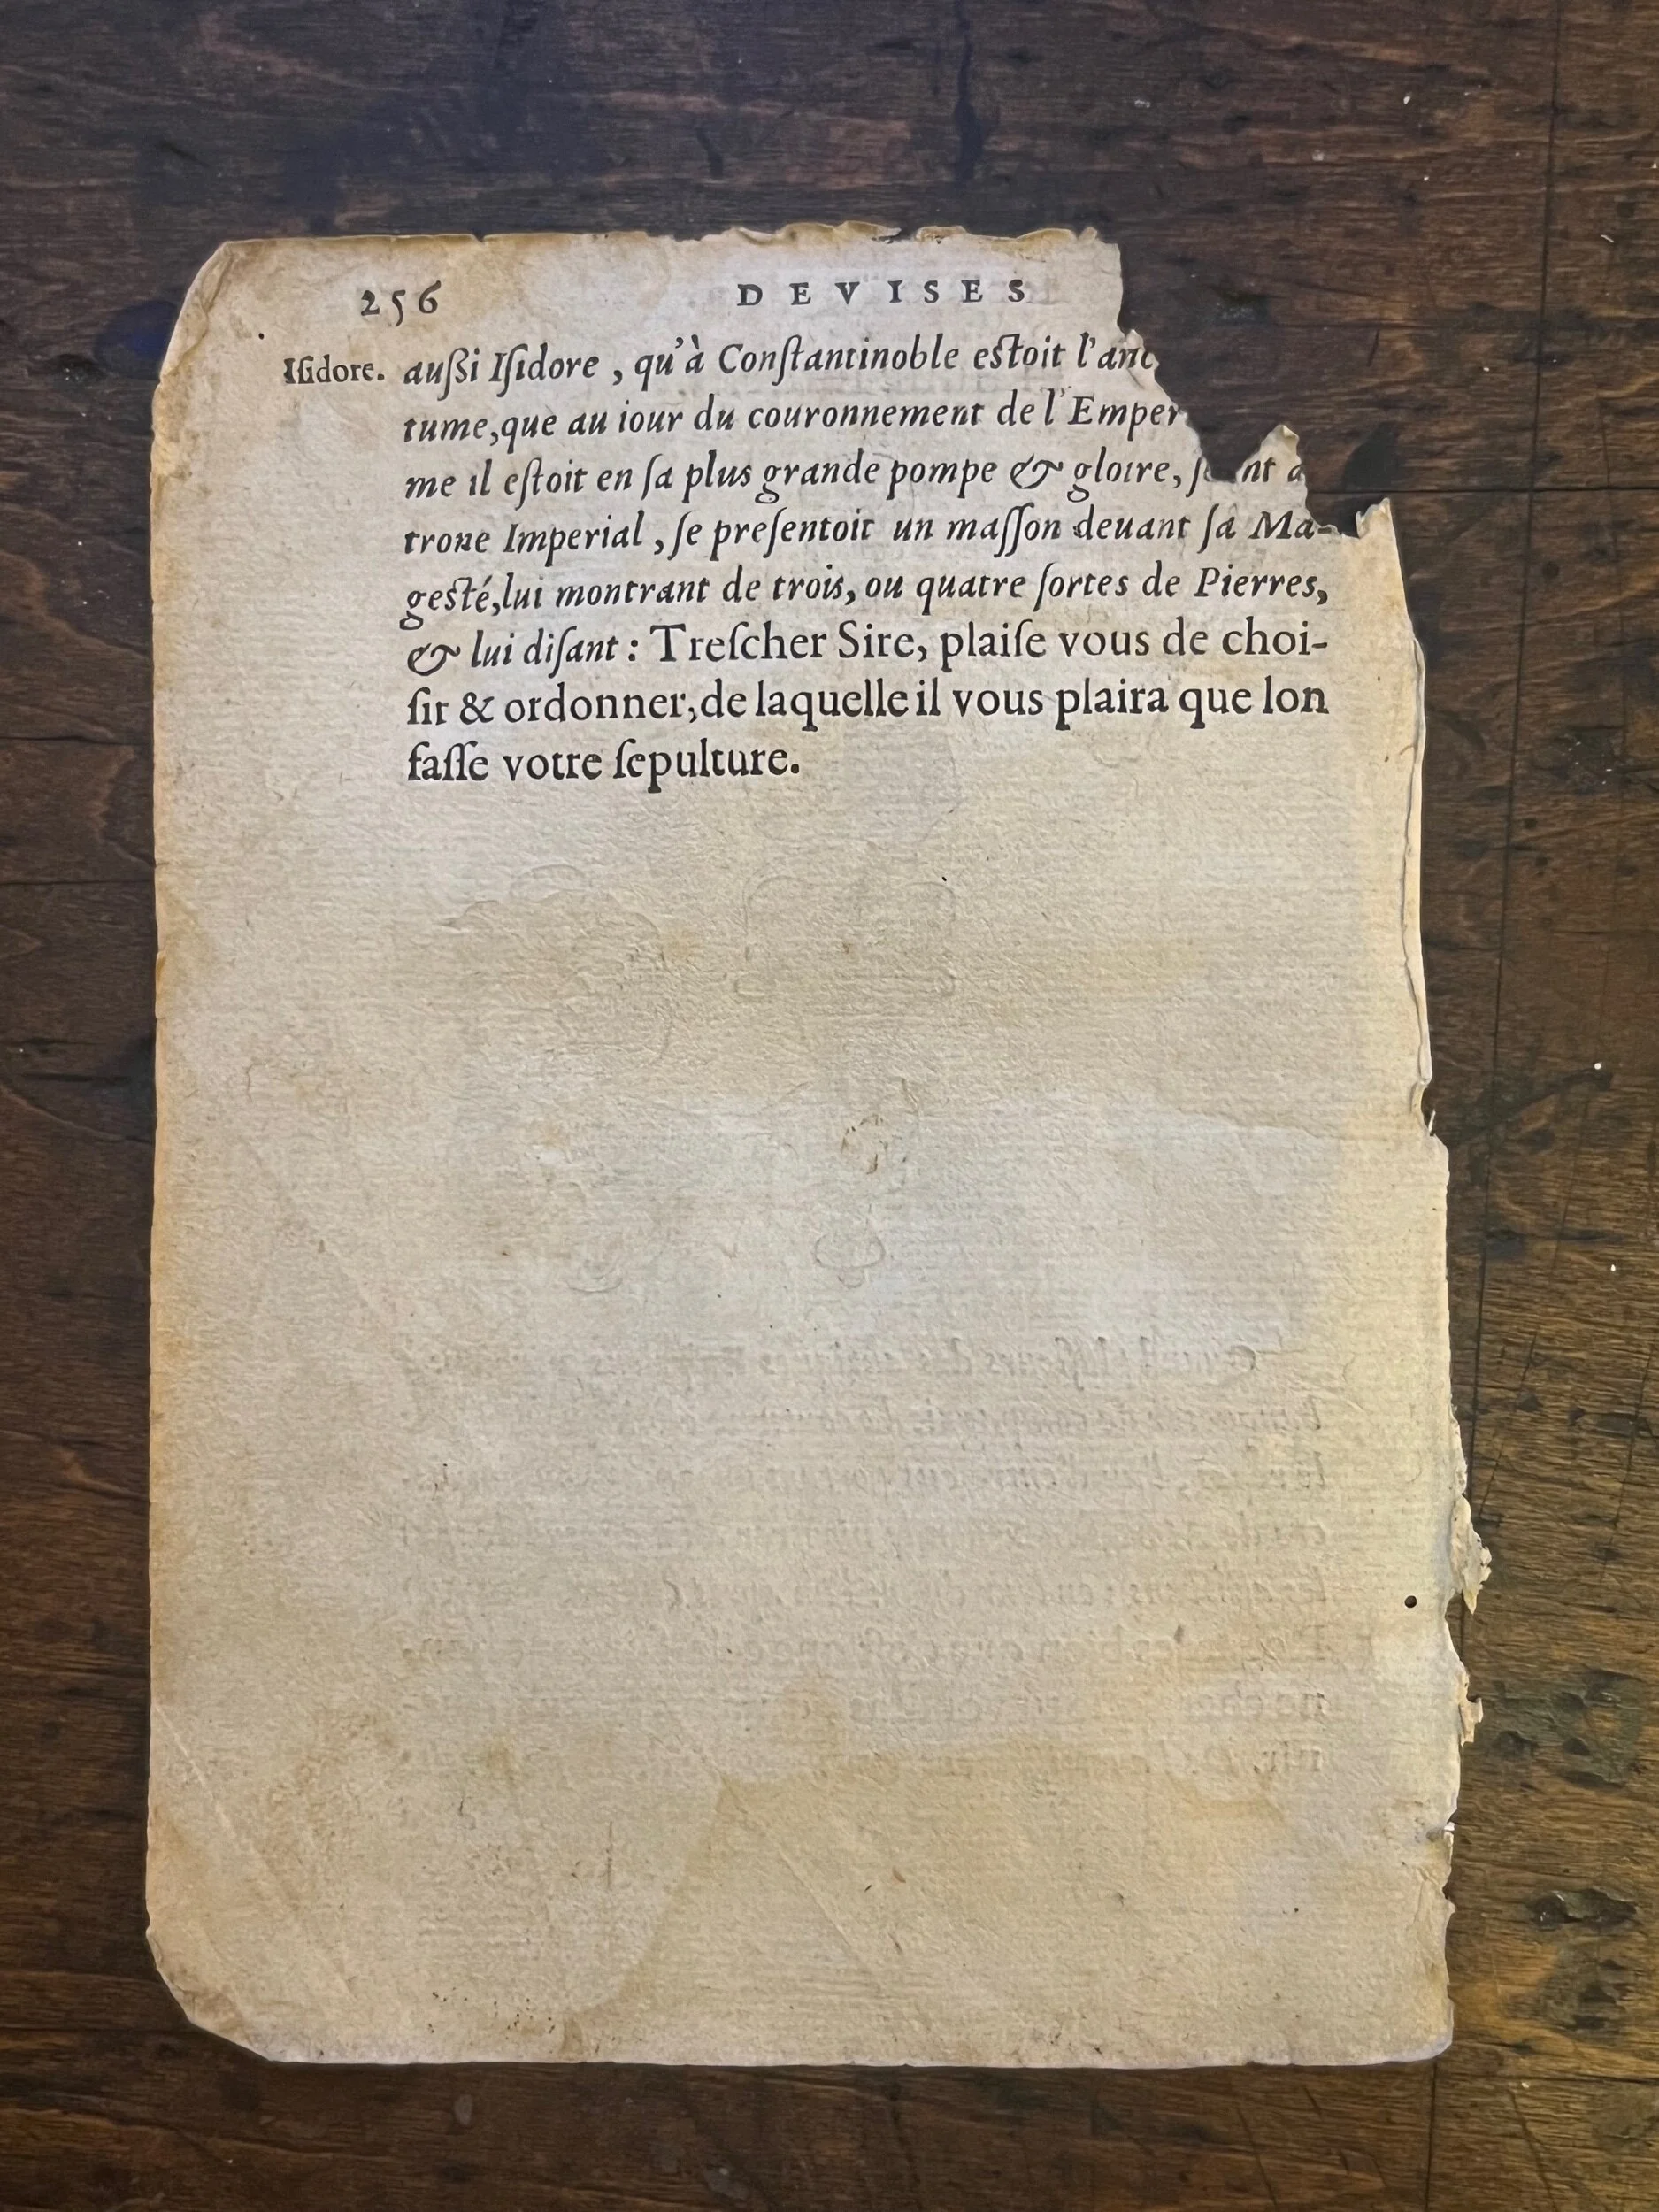 256 DEVISES
Iſidore. auſſi Iſidore, qu'à Conſtantinoble eſtoit l'anc
tume, que au iour du couronnement de l'Emper
me il eſtoit en ſa plus grande pompe & gloire,
trone Imperial, ſe preſentoit un maſſon deuant ſa Ma-
geſté, lui montrant de trois, ou quatre ſortes de Pierres,
& lui diſant: Treſcher Sire, plaiſe vous de choi-
ſir & ordonner, de laquelle il vous plaira que lon
faſſe votre ſepulture.